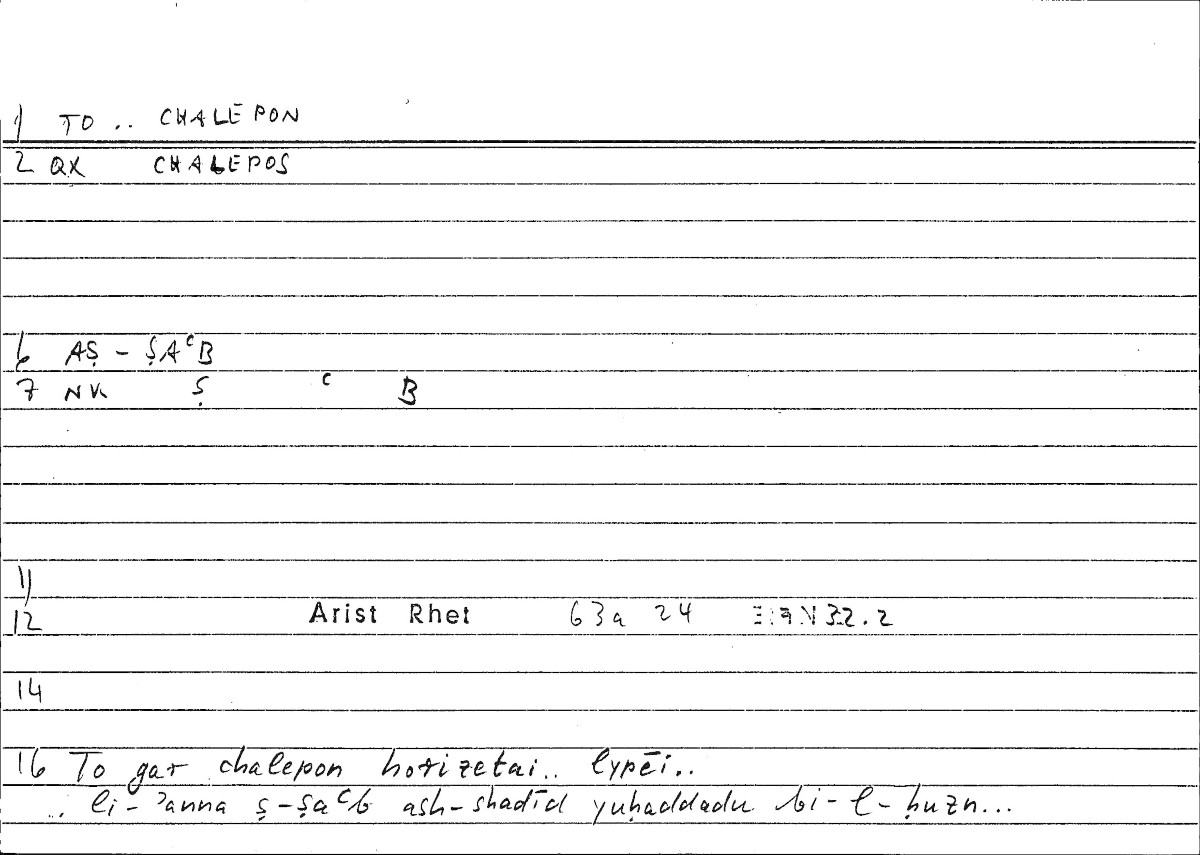 1 TO .. CHALEPON
2 QX CHALEPOS
6 AṢ - ṢAᶜB
7 NK Ṣ ᶜ B
11
12 Arist Rhet 63a 24 32.2
14
16 To gar chalepon horizetai.. lypēi..
.. li-ʾanna ṣ-ṣaᶜb ash-shadīd yuḥaddadu bi-l-ḥuzn...